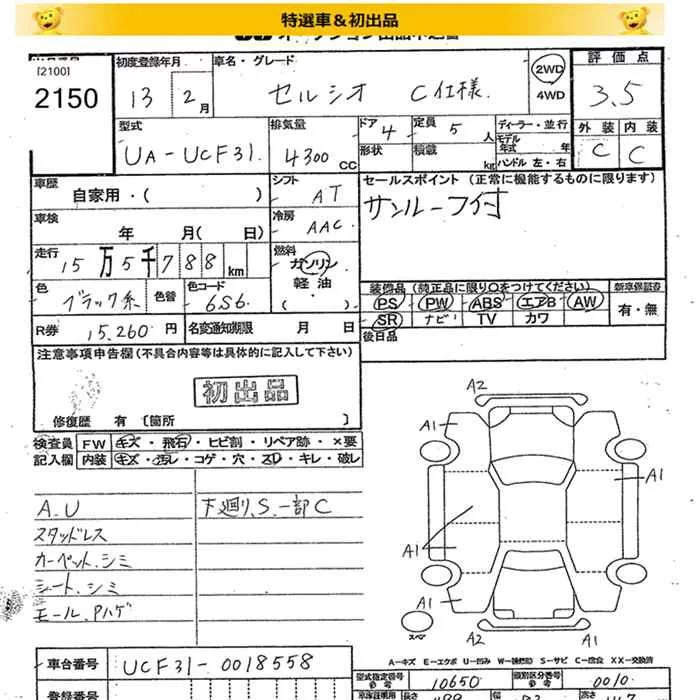 特選車&初出品
[2100]
2150
初度登録年月
13 2月
車名・グレード
セルシオ C仕様.
2WD
4WD
評価点
3.5
外装 内装
C C
型式
UA-UCF31.
排気量
4300cc
ドア 4
形状
定員 5人
積載 kg
ディーラー・並行
モデル年式 年
ハンドル 左・右
車歴
自家用・( )
シフト
AT
セールスポイント (正常に機能するものに限ります)
サンルーフ付
車検
年 月(日)
冷房
AAC.
走行
15万5千788km
燃料
ガソリン
軽油
( ・ )
色
ブラック系
色替
色コード
6S6.
装備品 (純正品に限り○をつけてください) 新車保証書
PS PW ABS エアB AW 有・無
SR ナビ TV カワ
R券 15,260円
名変通知期限 月 日
後日品
注意事項申告欄(不具合内容等は具体的に記入して下さい)
初出品
修復歴 有〔箇所 〕
検査員記入欄
FW キズ・飛石・ヒビ割・リペア跡・×要
内装 キズ・汚レ・コゲ・穴・スレ・キレ・破レ
A.U
スタッドレス
カーペット.シミ
シート.シミ
モール.Pハゲ
下廻り.S.一部C
A2
A1
A1
A1
A1
A2
A1
スペア
A-キズ E-エクボ U-凹み W-補修跡 S-サビ C-腐食 X-要交換 XX-交換済
車台番号 UCF31-0018558
型式指定番号 参考 10650
類別区分番号 参考 0010
登録番号